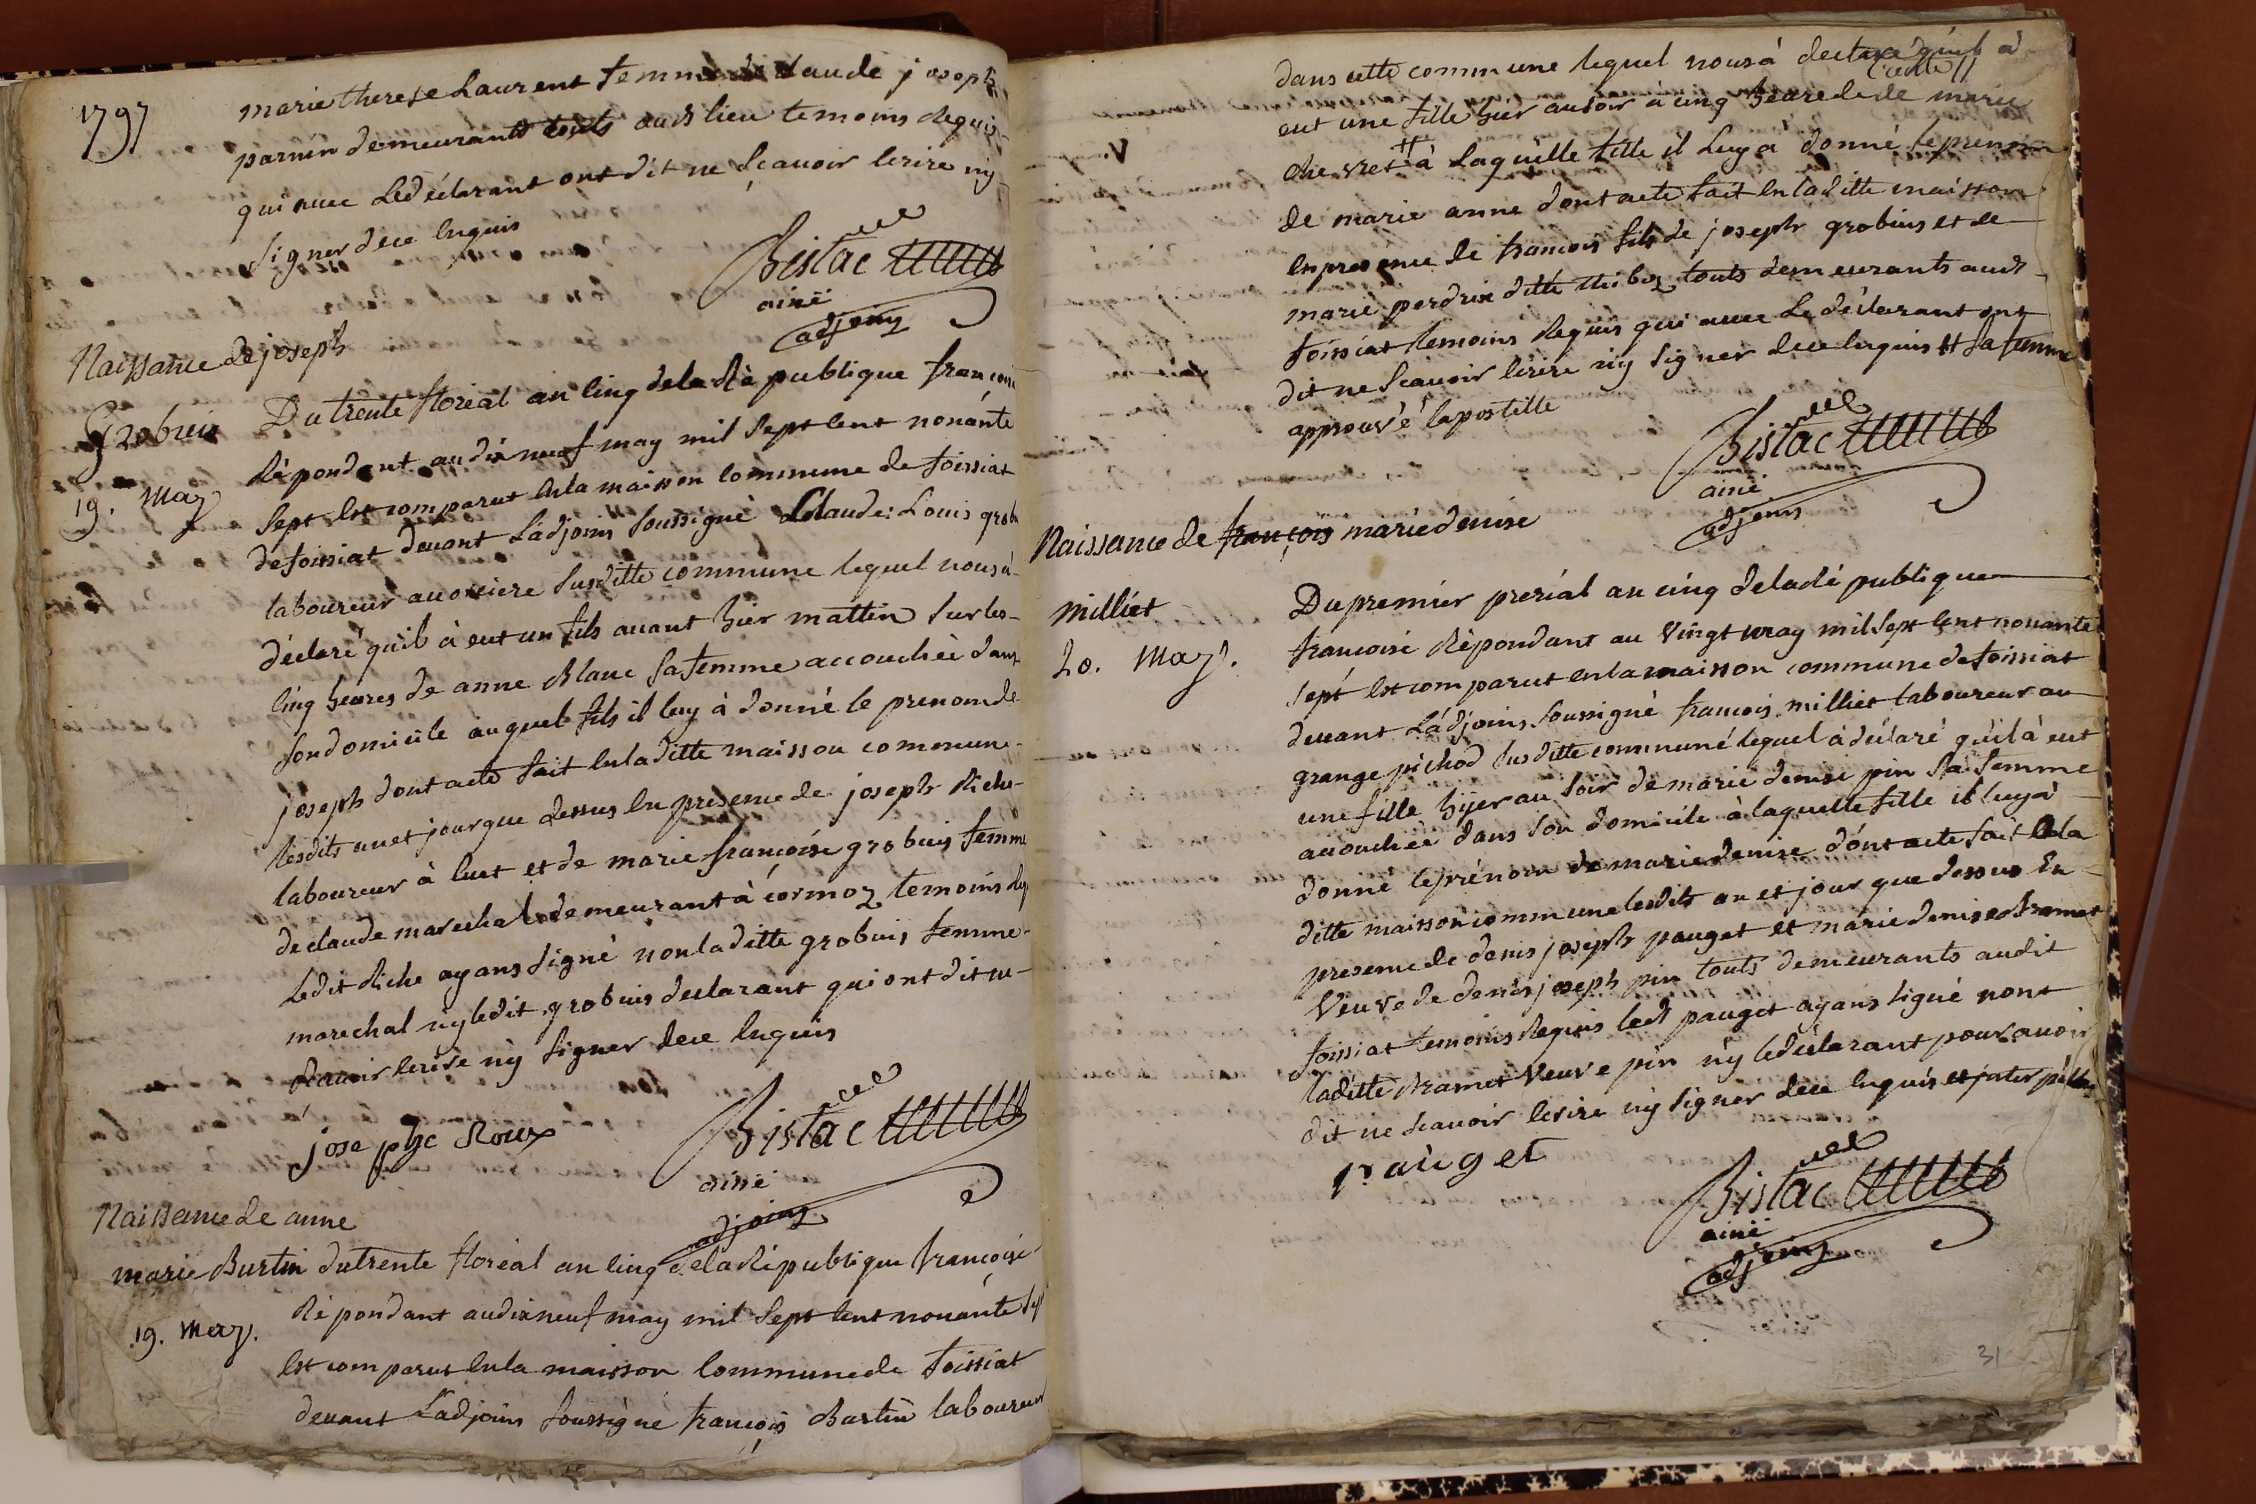 1797
marie therese Laurent femme de Claude joseph
parnin demeurants touts aud lieu temoins Requis
qui avec Ledéclarant ont dit ne Sçavoir Ecrire ny
Signer dece Enquis
Bistac
ainé
adjoint
Naissance de joseph
Grobuis
19. may
Du trente floréal an Cinq dela Rèpublique francoise
Rèpondant au dix neuf may mil Sept Cent nonánte
Sept Est comparut Enla maison Commune de foissiat
defoissiat devant Ládjoins Soussigné Claude Louis grob
laboureur a susditte commune lequel nous à
déclaré quil à eut un fils avant hier mattin Sur les
Cinq heures de anne Blanc Sa femme accouchée dans
Son domicile auquel fils il luy à donné le prenom de
joseph dont acte fait Enladitte maisson commune
lesdits an et jour que dessus En presence de joseph Riche
laboureur à Cuet et de marie françoise grobuis femme
de claude marechal demeurant à Cormoz temoins Req
Ledit Riche ayans Signé non laditte grobuis femme
marechal ny ledit grobuis declarant qui ont dit ne
Scavoir Ecrire ny Signer dece Enquis
josephe Roux
Bistac
ainé
adjoint
Naissance de anne
marie Burtin
19. May.
dutrente floréal an Cinq dela Rèpublique francoise
Rèpondant audixneuf may mil Sept Cent nonánte Sept
Est comparut Enla maisson Communede foissiat
devant Ladjoins Soussigné francois Burtin laboureur
dans cette commune lequel nous à declaré quil à
eut une fille hier ausoir a cinq heure de de marie
chevret # à Laquelle fille il Luy à donné le prenom
de marie anne dont acte fait En laditte maisson
Enpresence de francois fils de joseph grobuis et de
marie perdrix ditte touts demeurants aud
foissiat temoins Requis qui avec Le déclarant ont
dit ne Scavoir Ecrire ny Signer dece Enquis # Sa femme
approuvé Lapostille
Bistac
ainé
adjoint
Naissance de françois marie denise
milliet
20. May.
Du premier prerial an cinq dela Ré publique
francoise Rèpondant au Vingt may mil Sept Cent nonante
Sept Est comparut enla maisson commune defoissiat
devant Ládjoins Soussigné francois milliet laboureur au
grange pichod Susditte communé lequel à déclaré quil à eut
une fille hyer au Soir de marie denise pin Sa femme
accouchée dans Son domicile à laquelle fille il luy à
donné leprénom de marie denise dont acte fait Enla
ditte maisson commune lesdits an et jour que dessus En
presence de denis joseph pauget et marie denise bramet
Veuve de denis joseph pin touts demeurants audit
foissiat temoins Requis led pauget ayans Signé nont
laditte bramet Veuve pin ny ledéclarant pour avoir
dit ne Scavoir Ecrire ny Signer dece Enquis
pauget
Bistac
ainé
adjoint
31